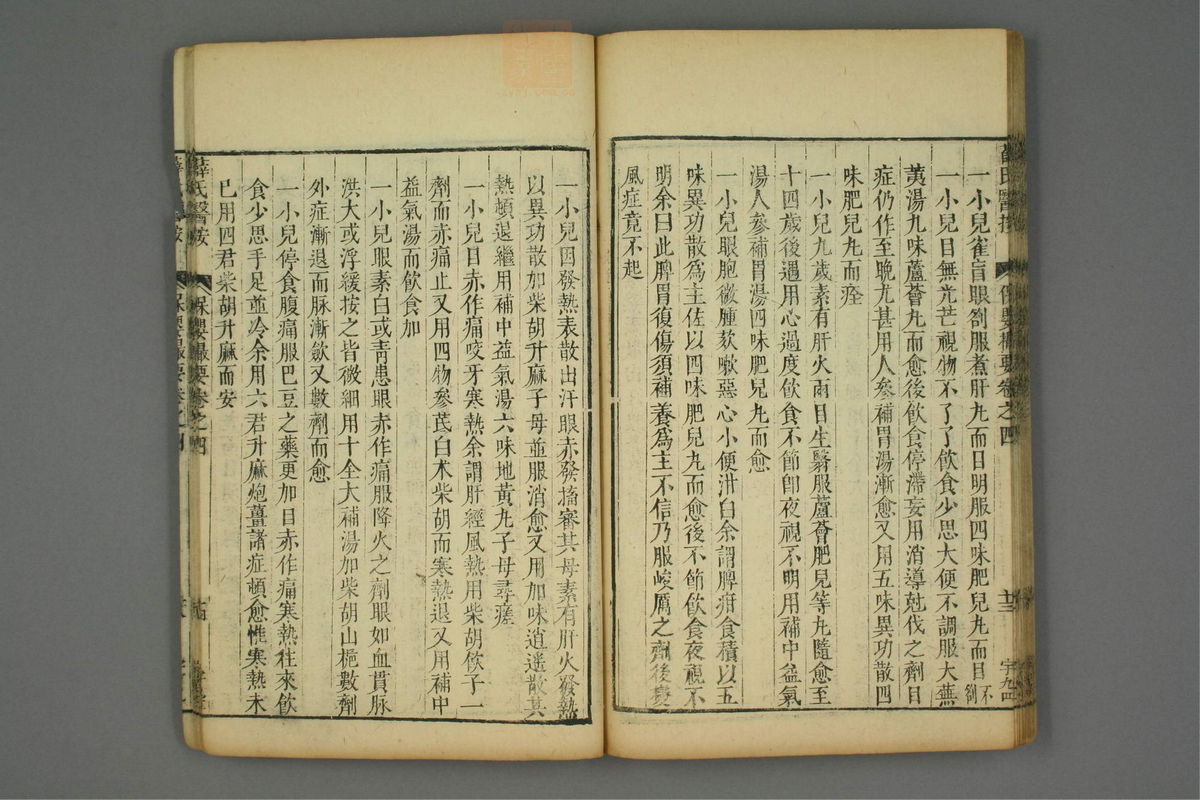 薛氏醫按 保嬰撮要卷之四 十三
一小兒雀盲眼劄服煮肝丸而目明服四味肥兒丸而目不劄
一小兒目無光芒視物不了了飲食少思大便不調服大蕪
荑湯九味蘆薈丸而愈後飲食停滯妄用消導尅伐之劑目
症仍作至晚尤甚用人參補胃湯漸愈又用五味異功散四
味肥兒丸而痊
一小兒九歲素有肝火兩目生翳服蘆薈肥兒等丸隨愈至
十四歲後遇用心過度飲食不節卽夜視不明用補中益氣
湯人參補胃湯四味肥兒丸而愈
一小兒眼胞微腫欬嗽惡心小便泔白余謂脾疳食積以五
味異功散爲主佐以四味肥兒丸而愈後不節飲食夜視不
明余曰此脾胃復傷須補養爲主不信乃服峻厲之劑後變
風症竟不起
一小兒因發熱表散出汗眼赤發搐審其母素有肝火發熱
以異功散加柴胡升麻子母並服消愈又用加味逍遙散其
熱頓退繼用補中益氣湯六味地黃丸子母尋瘥
一小兒目赤作痛咬牙寒熱余謂肝經風熱用柴胡飲子一
劑而赤痛止又用四物參芪白朮柴胡而寒熱退又用補中
益氣湯而飲食加
一小兒眼素白或青患眼赤作痛服降火之劑眼如血貫脉
洪大或浮緩按之皆微細用十全大補湯加柴胡山梔數劑
外症漸退而脉漸歛又數劑而愈
一小兒停食腹痛服巴豆之藥更加目赤作痛寒熱往來飲
食少思手足並冷余用六君升麻炮薑諸症頓愈惟寒熱未
已用四君柴胡升麻而安
薛氏醫按 保嬰撮要卷之四